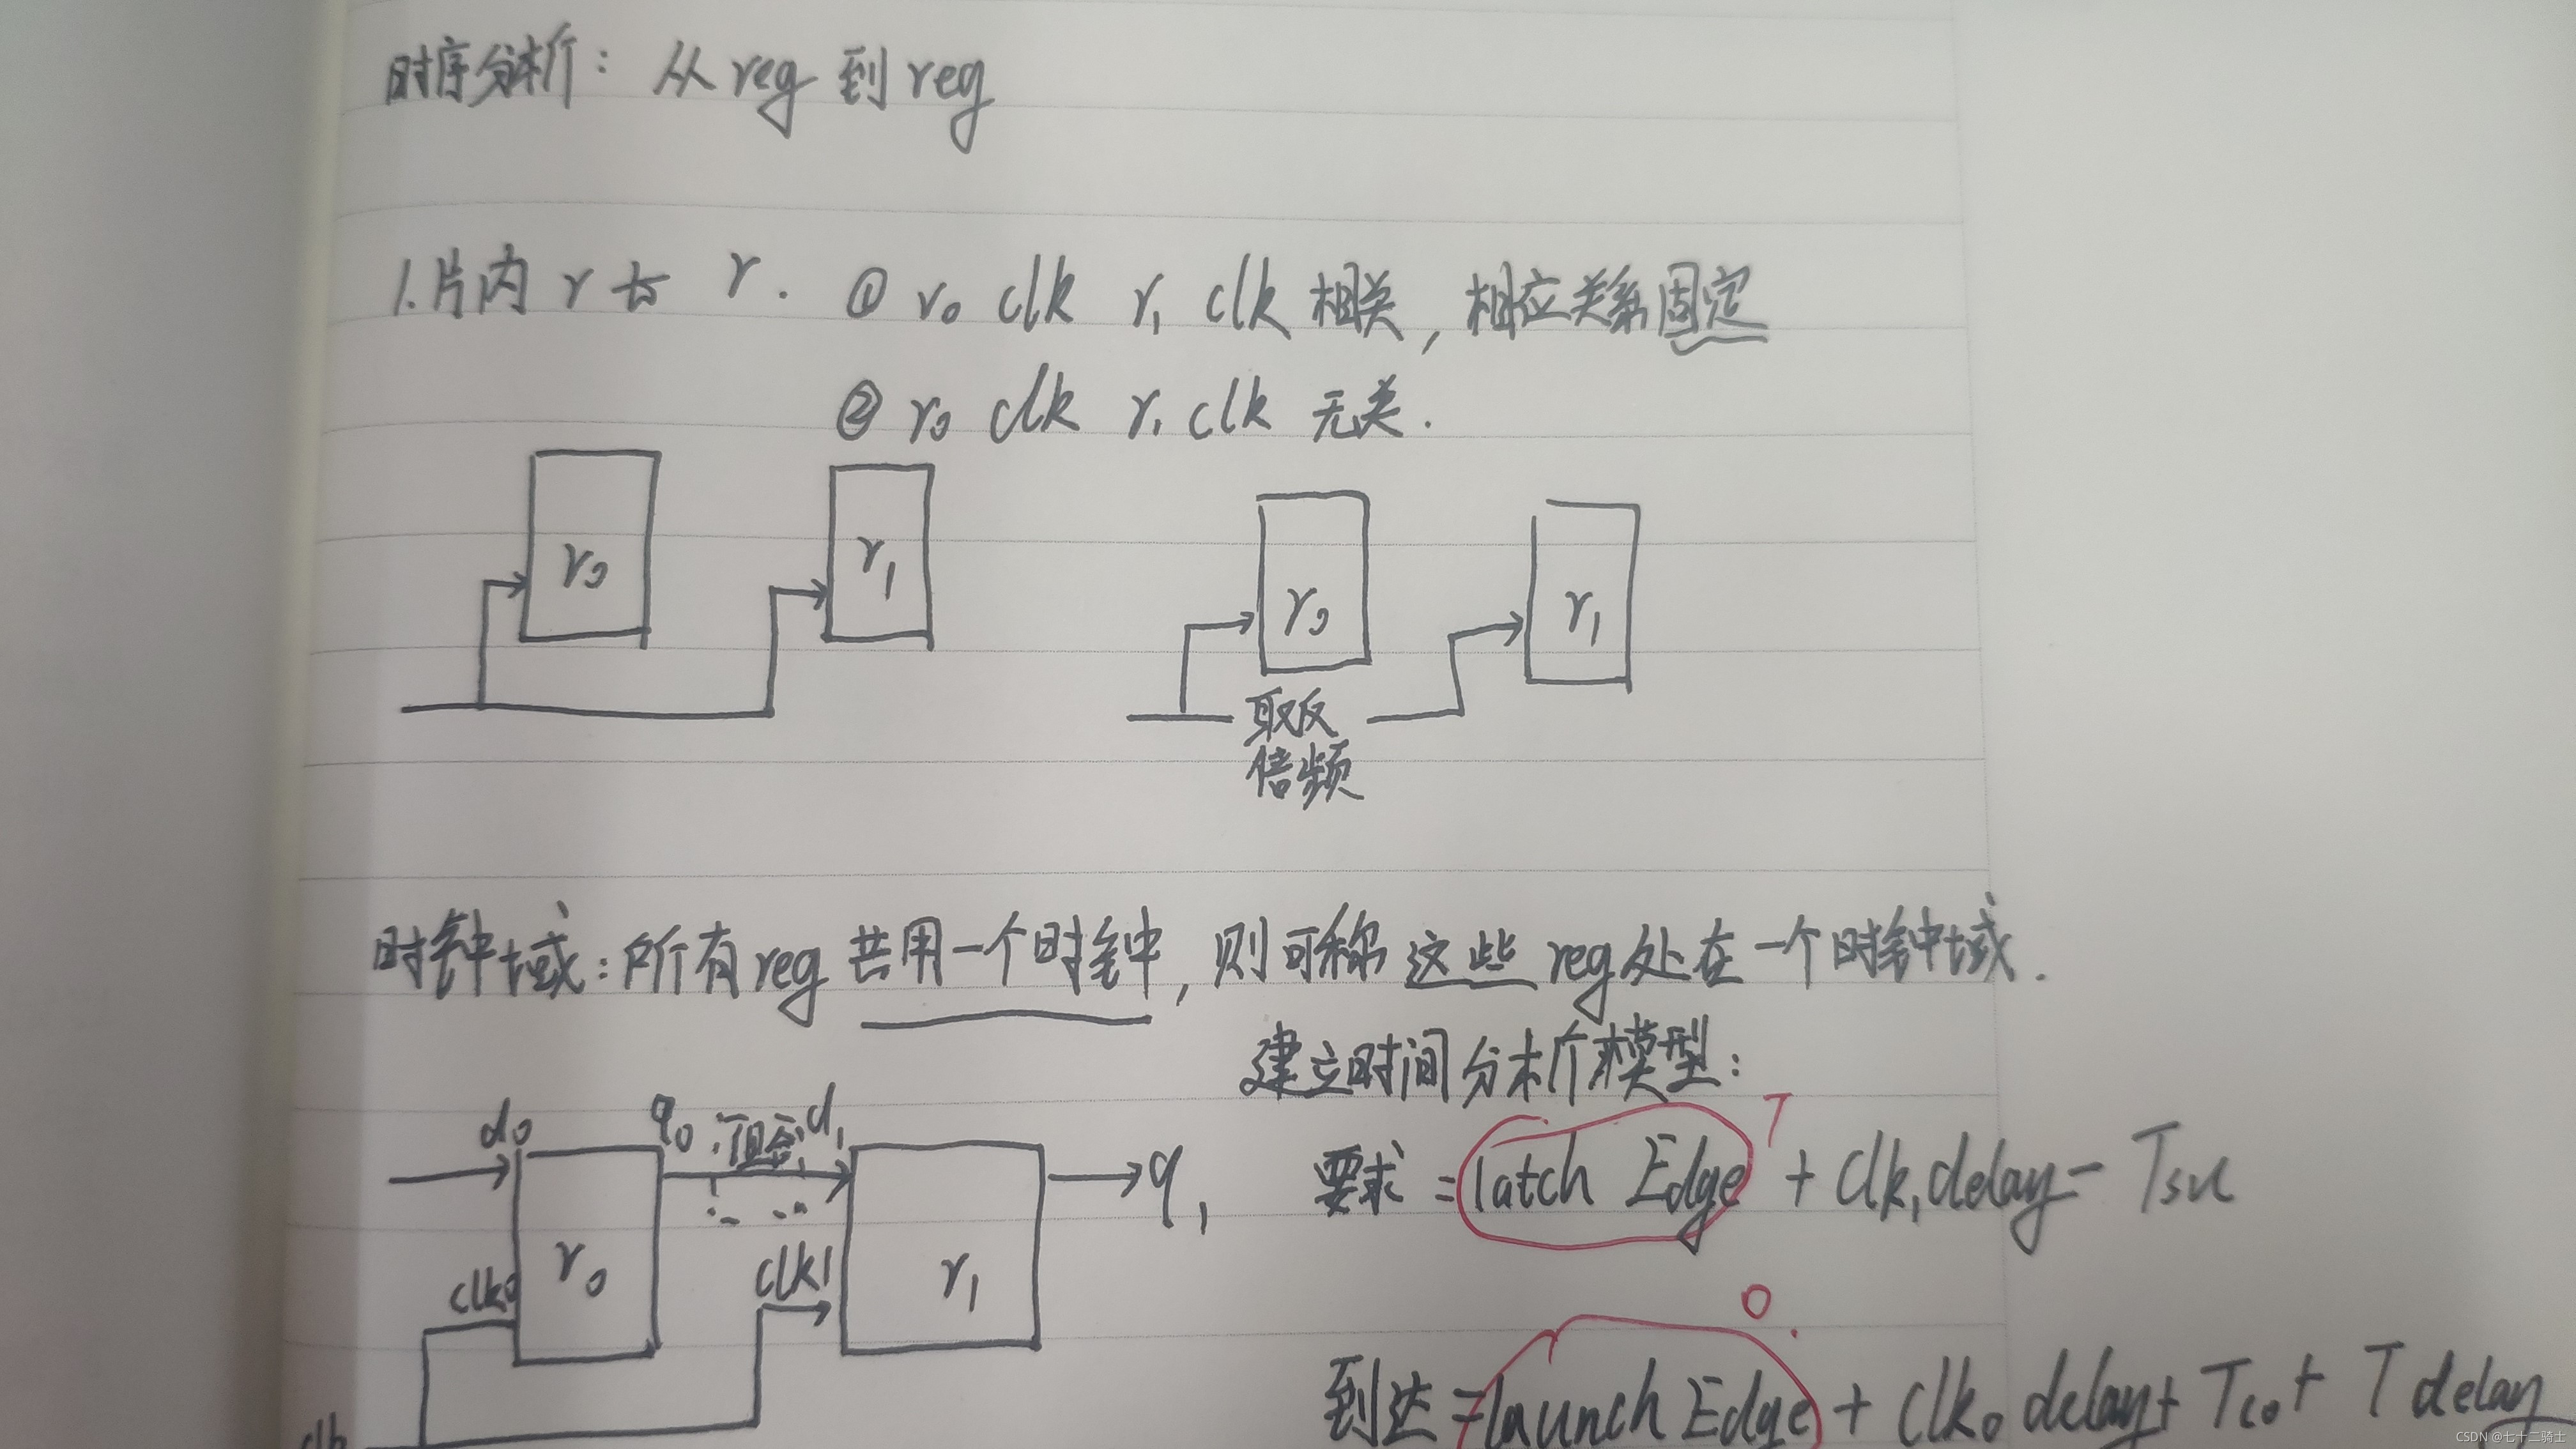 时序分析：从reg到reg
1.片内 r to r. ① r0 clk r1 clk 相关，相应关系固定
② r0 clk r1 clk 无关.
r0
r1
r0
r1
取反
倍频
时钟域：所有reg共用一个时钟，则可称这些reg处在一个时钟域.
建立时间分析模型：
d0
q0
组合
d1
q1
clk0
r0
clk1
r1
clk
T
要求=latch Edge + Clk1 delay - Tsu
0
到达=launch Edge + Clk0 delay + Tco + T delay
CSDN @七十二骑士